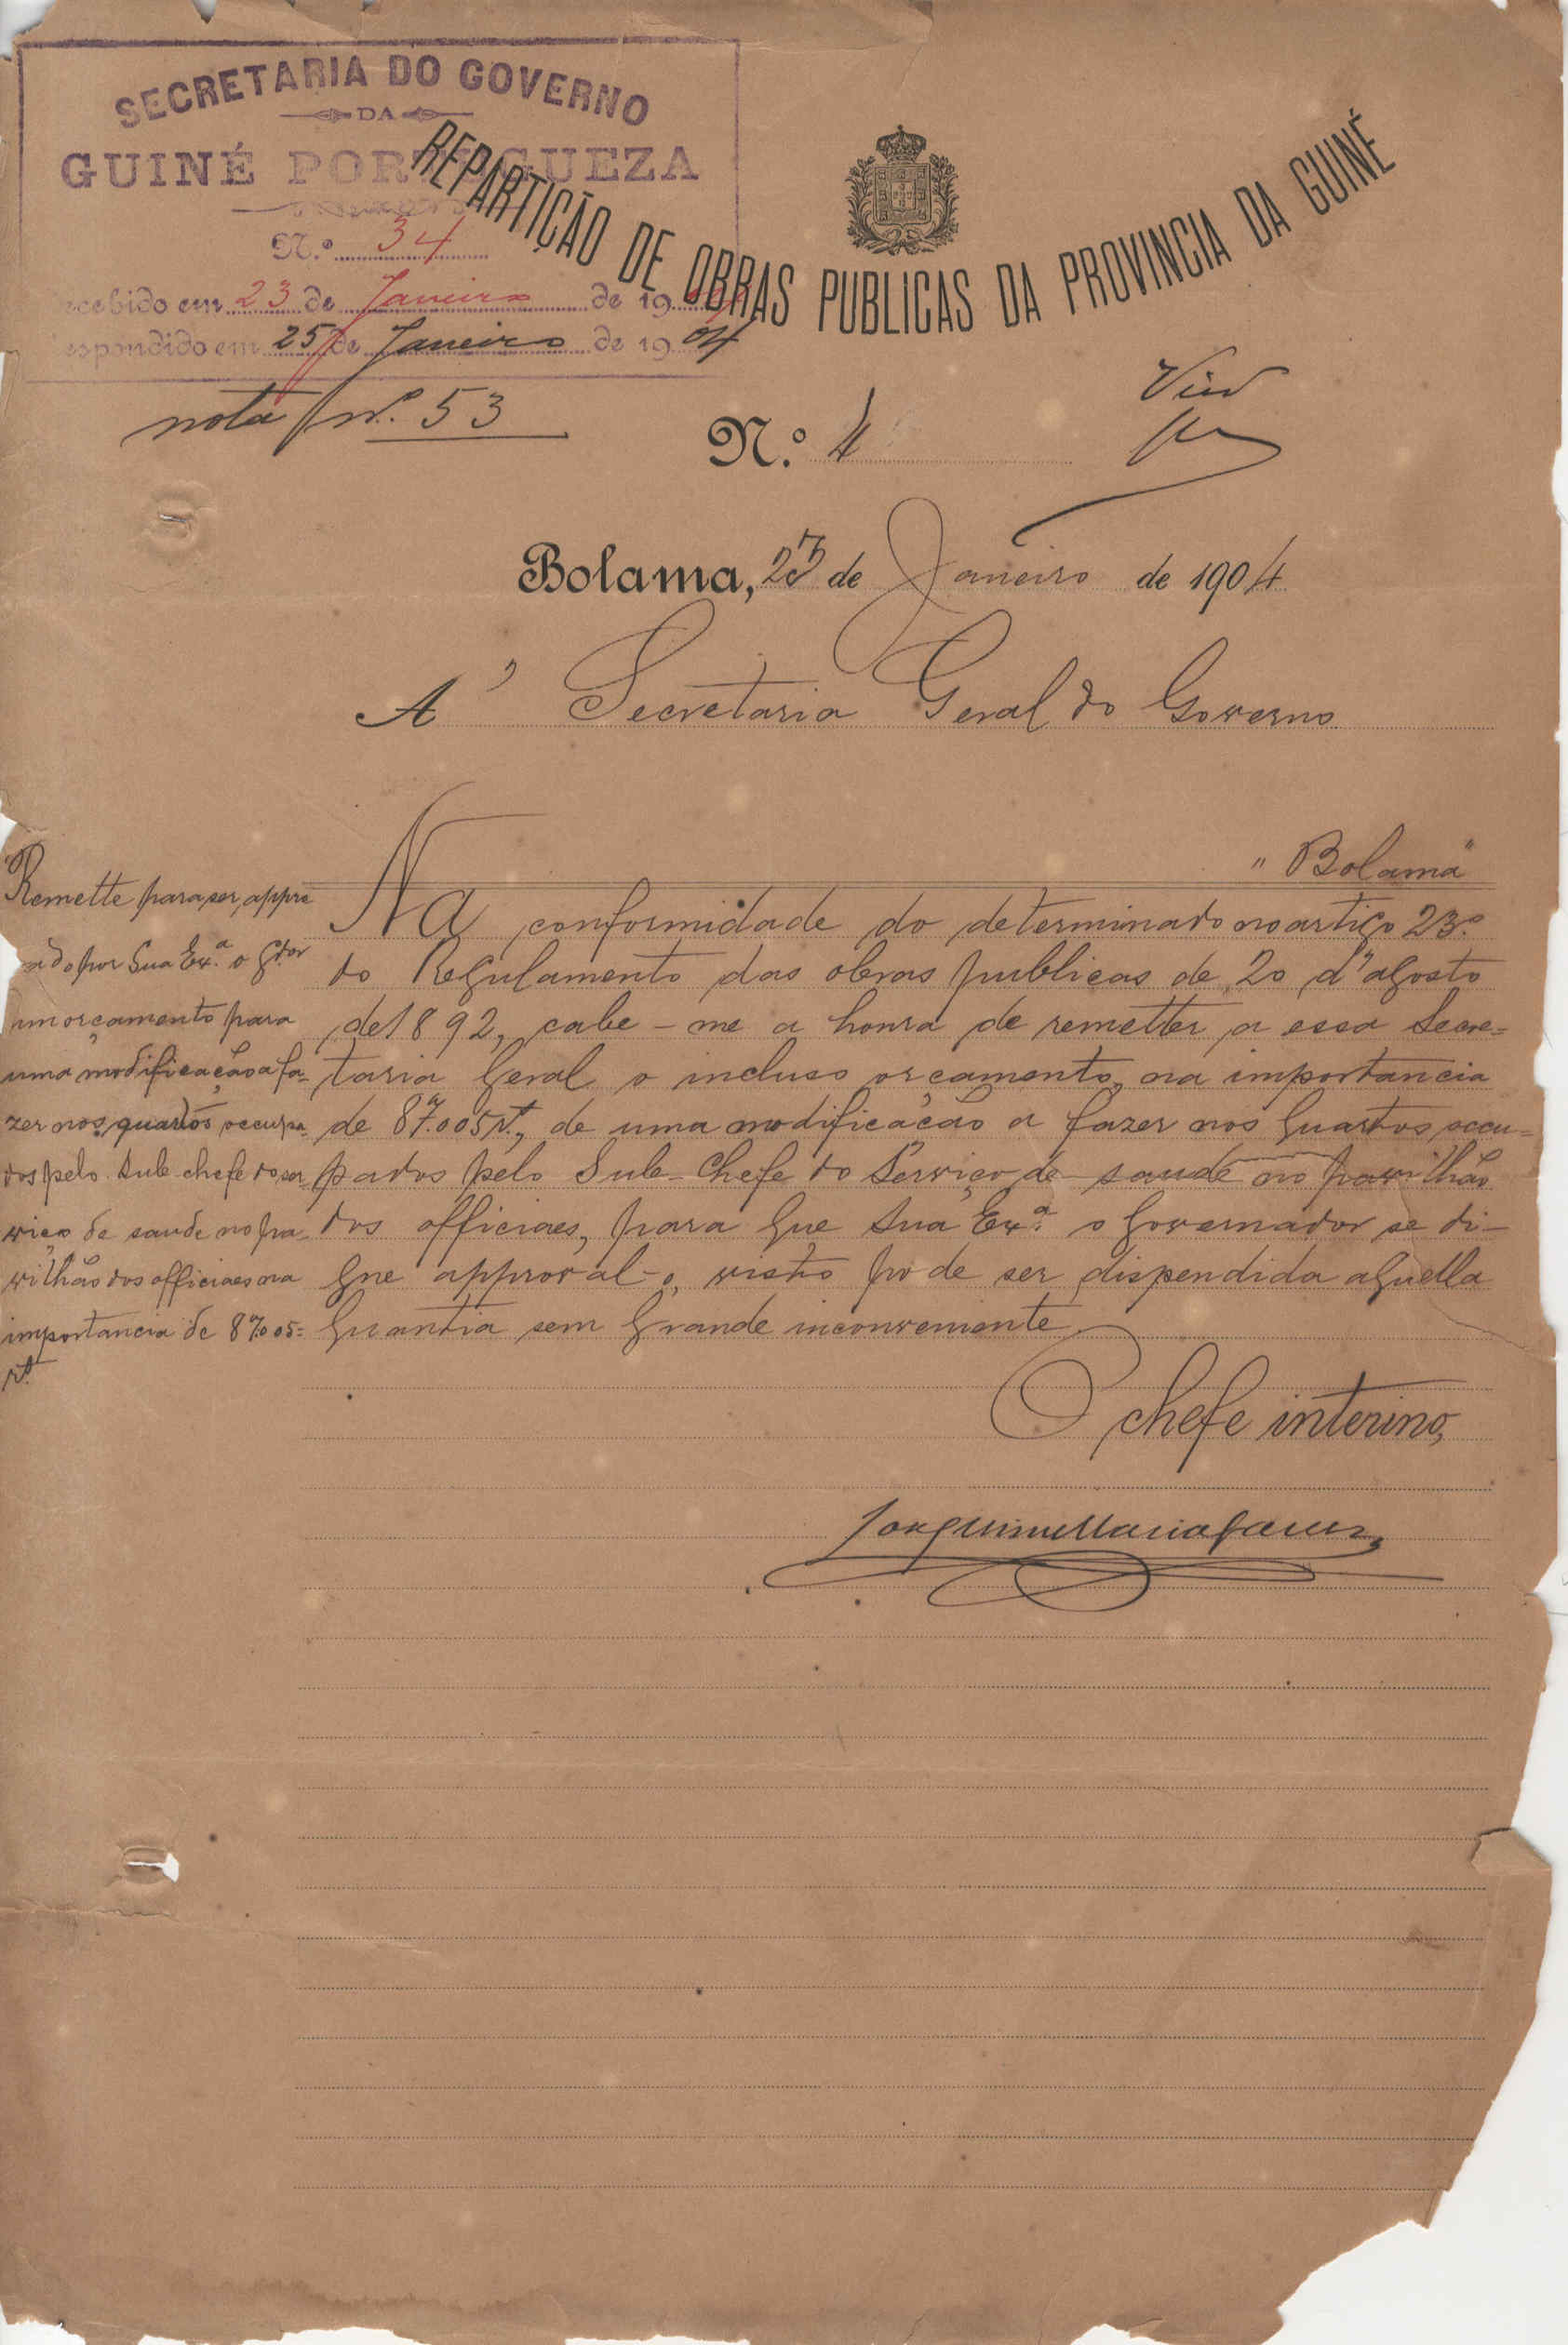 SECRETARIA DO GOVERNO
DA
GUINÉ PORTUGUEZA
N.º 34
ecebido em 23 de Janeiro de 19
espondido em 25 de Janeiro de 1904
nota nº. 53
REPARTIÇÃO DE OBRAS PUBLICAS DA PROVINCIA DA GUINÉ
N.º 4
Bolama, 23 de Janeiro de 1904
A' Secretaria Geral do Governo
"Bolama"
Remette para ser appro
ado por Sua Ex.ª o G.dor
um orçamento para
uma modificação a fa-
zer nos quartos occupa-
dos pelo Sub-chefe do ser-
viço de saude no pa-
vilhão dos officiaes na
importancia de 87.005=
r.s
Na conformidade do determinado no artigo 23.º
do Regulamento das obras publicas de 20 d'agosto
de 1892, cabe-me a honra de remetter a essa Secre=
taria Geral o incluso orçamento, na importancia
de 87.005 r.s, de uma modificação a fazer nos quartos occu=
pados pelo Sub-Chefe do Serviço de saude no pavilhão
dos officiaes, para que Sua Ex.ª o Governador se di-
gne approval-o, visto pode ser dispendida aquella
quantia sem grande inconveniente.
O chefe interino,
Joaquim Maria